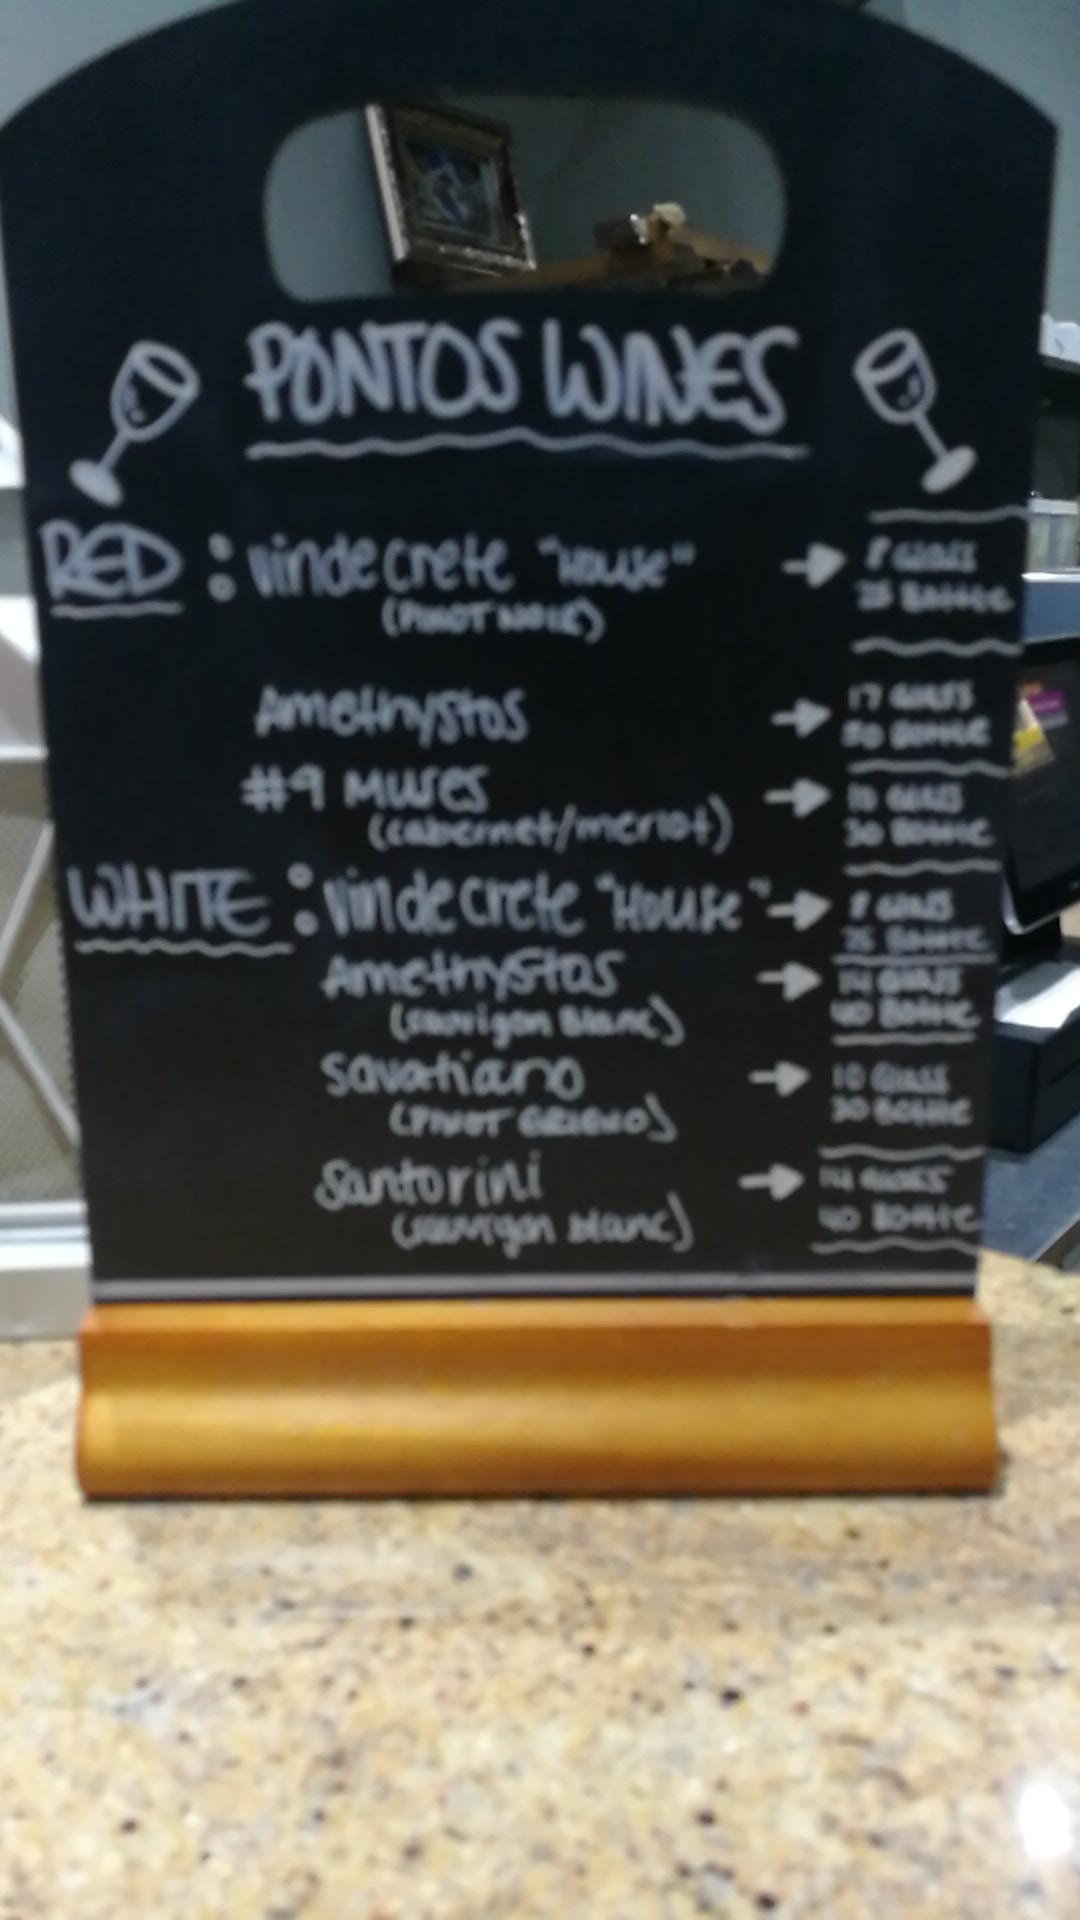 PONTOS WINES
RED : vin de crete "House" → 8 GLASS
25 Bottle
(PINOT NOIR)
Amethystos → 17 GLASS
50 Bottle
#9 Muses → 10 GLASS
(cabernet/merlot) 30 Bottle
WHITE : vin de crete "House" → 8 GLASS
25 Bottle
Amethystos → 14 GLASS
(sauvigon Blanc) 40 Bottle
Savatiano → 10 GLASS
(PINOT GRIGIO) 30 Bottle
Santorini → 14 GLASS
(sauvigon blanc) 40 Bottle